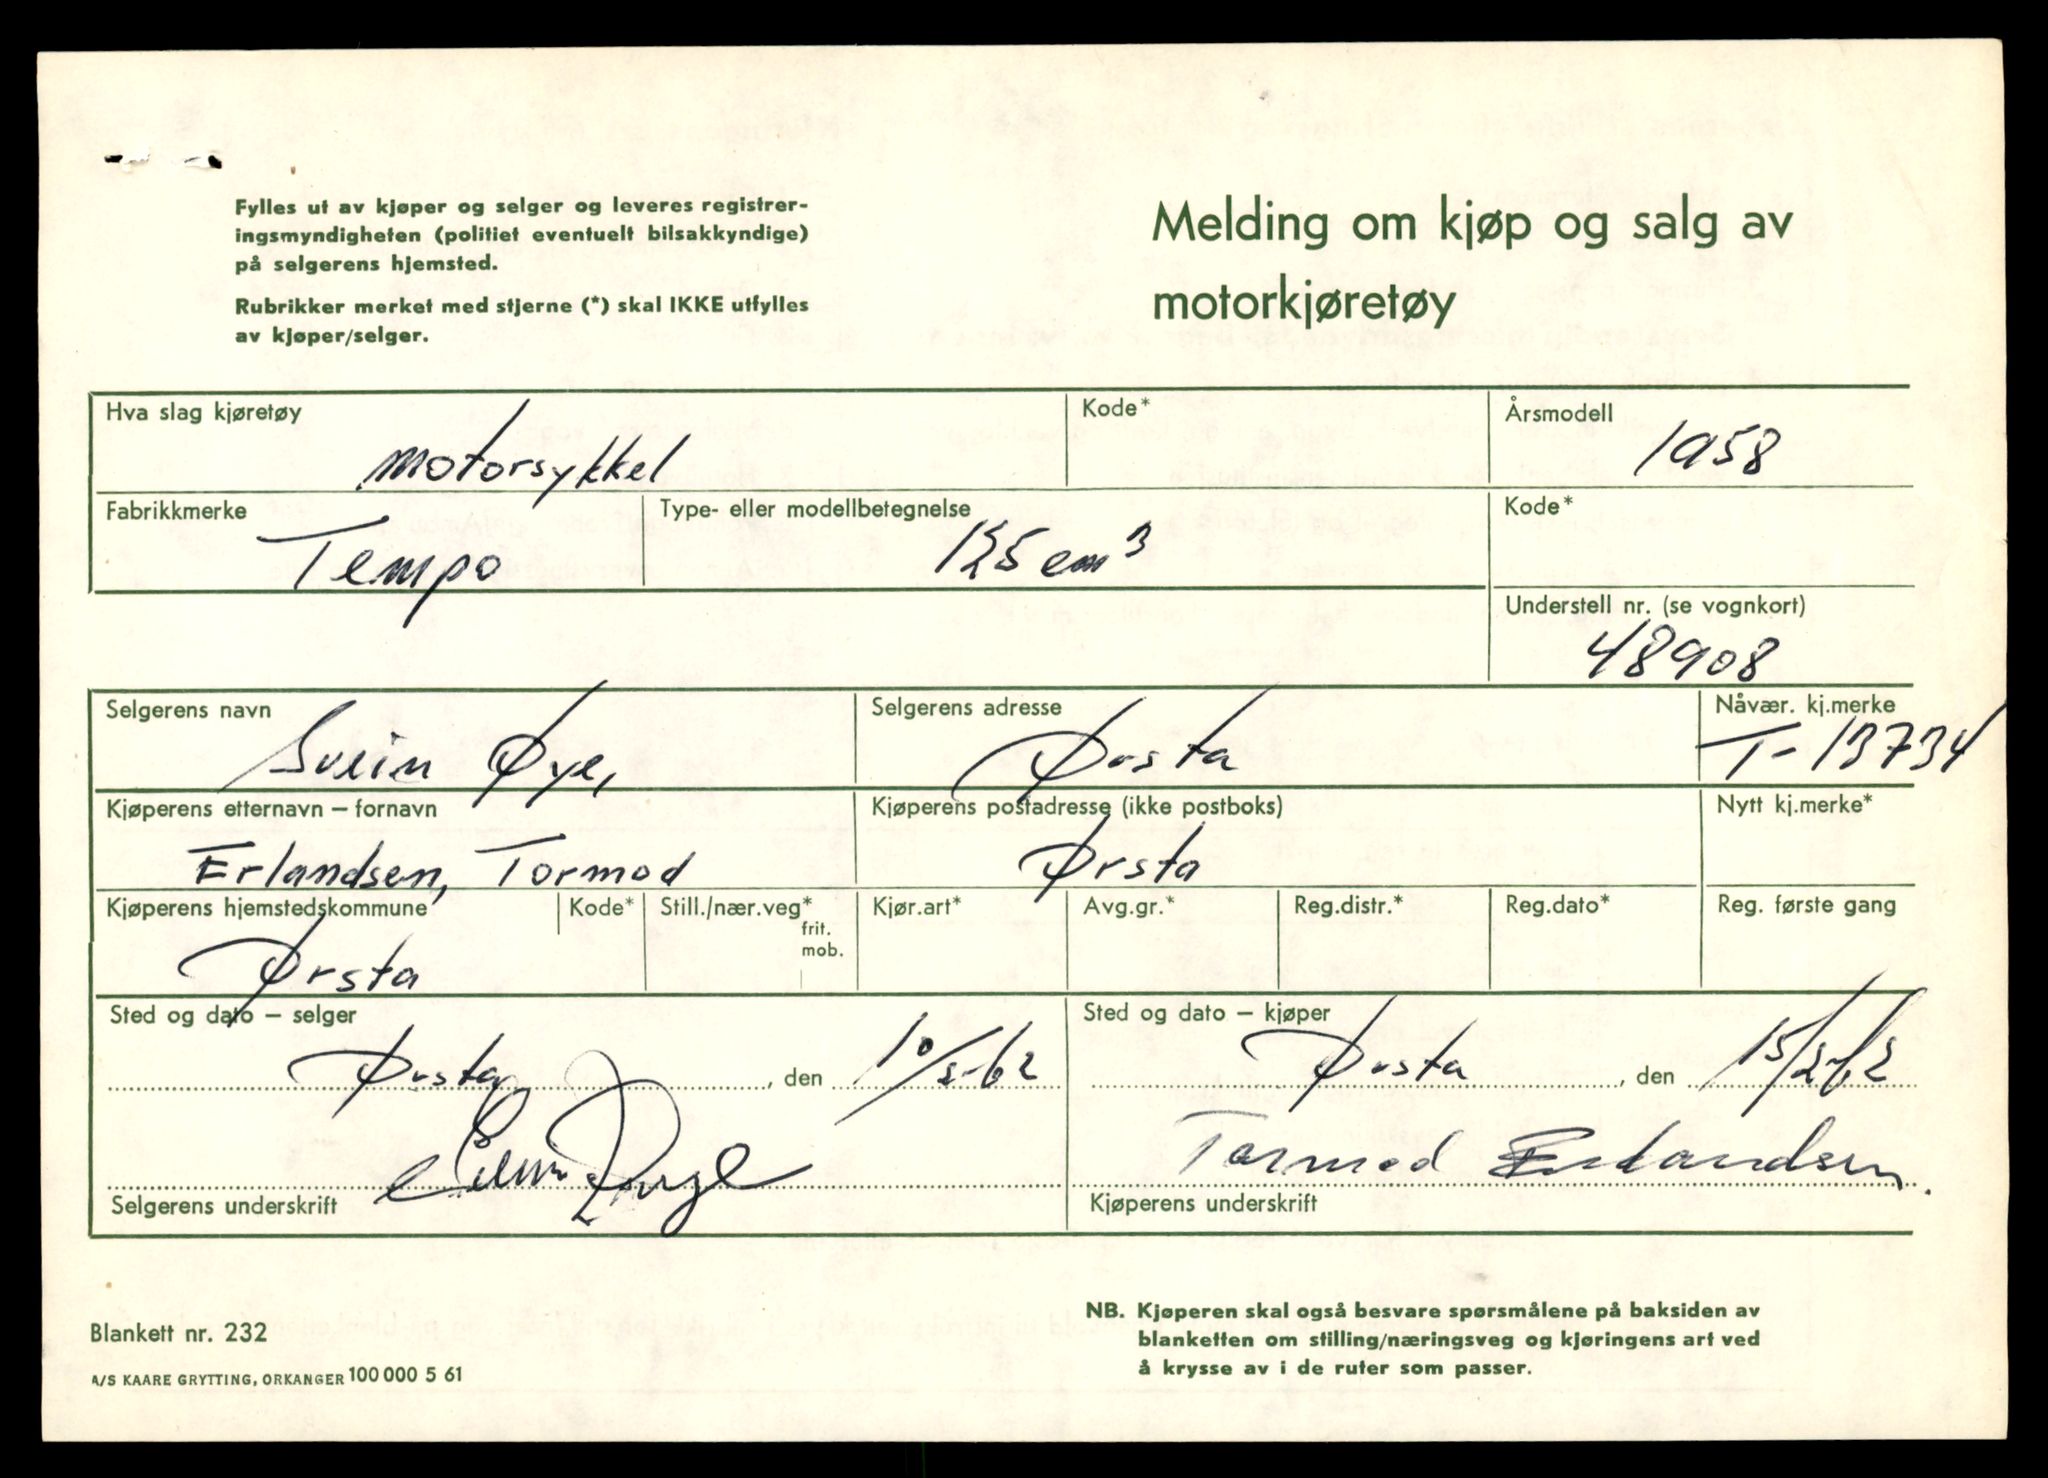 Fylles ut av kjøper og selger og leveres registrer-
ingsmyndigheten (politiet eventuelt bilsakkyndige)
på selgerens hjemsted.
Rubrikker merket med stjerne (*) skal IKKE utfylles
av kjøper/selger.
Melding om kjøp og salg av
motorkjøretøy
Hva slag kjøretøy
motorsykkel
Kode*
Årsmodell
1958
Fabrikkmerke
Tempo
Type- eller modellbetegnelse
125 cm³
Kode*
Understell nr. (se vognkort)
48908
Selgerens navn
Svein Øye,
Selgerens adresse
Ørsta
Nåvær. kj.merke
T-13734
Kjøperens etternavn – fornavn
Erlandsen, Tormod
Kjøperens postadresse (ikke postboks)
Ørsta
Nytt kj.merke*
Kjøperens hjemstedskommune
Ørsta
Kode*
Still./nær.veg*
frit.
mob.
Kjør.art*
Avg.gr.*
Reg.distr.*
Reg.dato*
Reg. første gang
Sted og dato – selger
Ørsta, den 10/2-62
Selgerens underskrift
Sted og dato – kjøper
Ørsta, den 15/2-62
Tormod Erlandsen.
Kjøperens underskrift
Blankett nr. 232
A/S KAARE GRYTTING, ORKANGER 100 000 5 61
NB. Kjøperen skal også besvare spørsmålene på baksiden av
blanketten om stilling/næringsveg og kjøringens art ved
å krysse av i de ruter som passer.